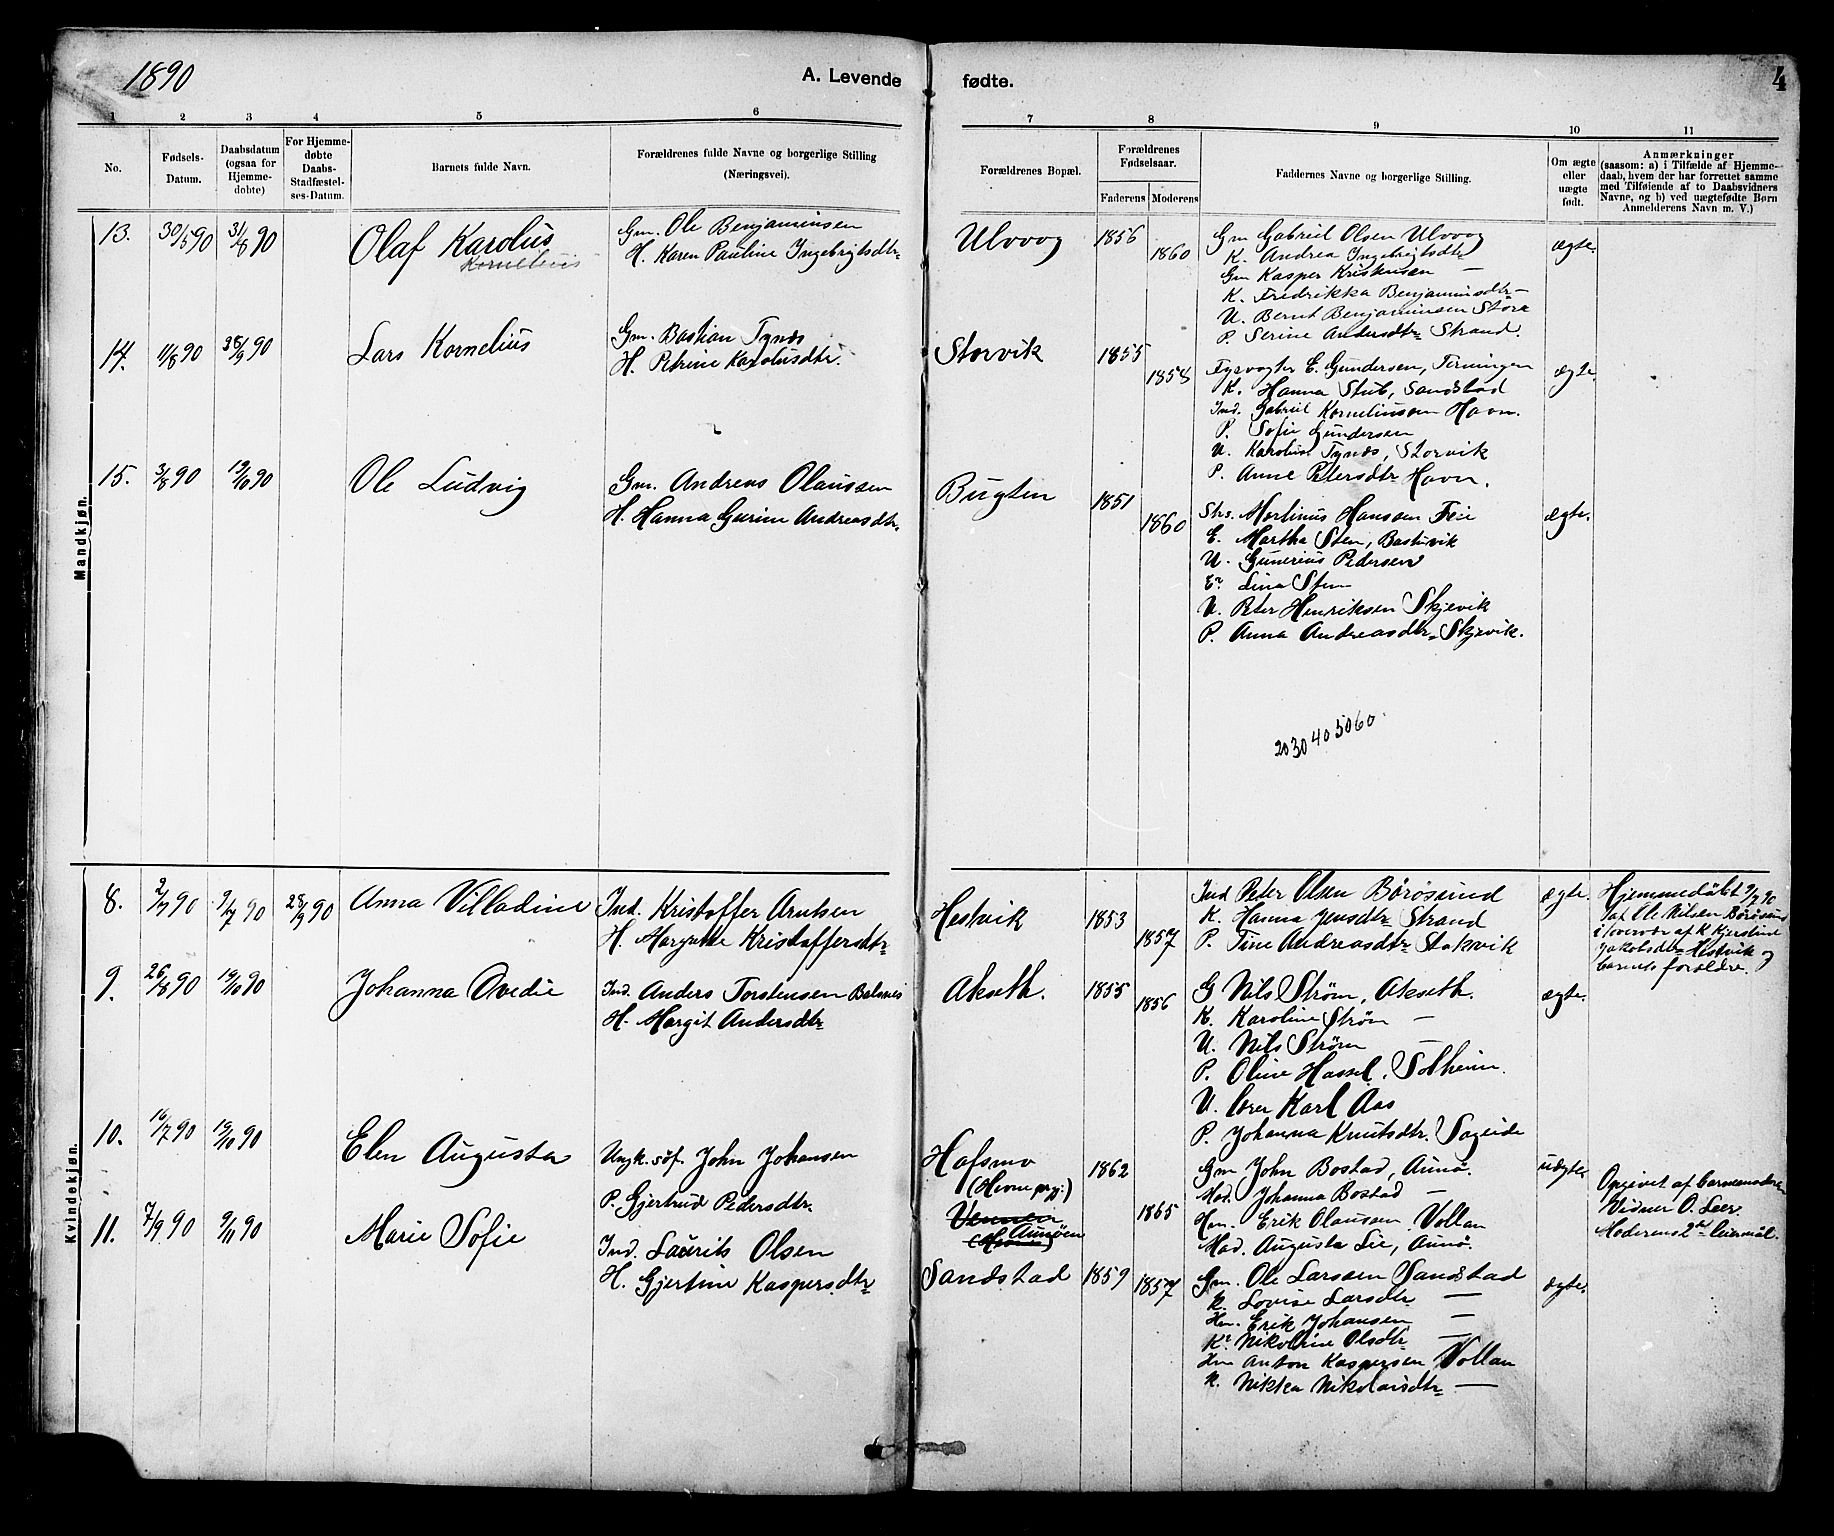 1890
A. Levende
fødte.
4
1 2 3 4 5 6 7 8 9 10 11
No.
Fødsels-Datum.
Daabsdatum (ogsaa for Hjemme-døbte)
For Hjemme-døbte Daabs-Stadfæstel-ses-Datum.
Barnets fulde Navn.
Forældrenes fulde Navne og borgerlige Stilling (Næringsvei).
Forældrenes Bopæl.
Forældrenes Fødselsaar.
Faderens Moderens
Faddernes Navne og borgerlige Stilling.
Om ægte eller uægte født.
Anmærkninger
(saasom: a) i Tilfælde af Hjemme-
daab, hvem der har forrettet samme
med Tilføiende af to Daabsvidners
Navne, og b) ved uægtefødte Børn
Anmelderens Navn m. V.)
Mandkjøn.
13. 30/5 90 31/8 90 Olaf Karolus
Kornelius
Gm. Ole Benjaminsen
H. Karen Pauline Ingebrigtsdtr
Ulvvog 1856 1860
Gm Gabriel Olsen Ulvvog
K. Andrea Ingebrigtsdtr
Gm Kasper Kristensen —
K. Fredrikka Benjaminsdtr —
U. Bernt Benjaminsen Støra
P. Serine Andersdtr Strand.
ægte.
14. 11/8 90 28/9 90 Lars Kornelius
Gm. Bastian Tynds
H. Petrine Karolusdtr.
Storvik 1855 1858
E. Gundersen, Terningen
K. Hanna Stub, Sandstad
Ind. Gabriel Korneliussen Havn.
P. Sofie Gundersen
U. Karolus Tynds, Storvik
P. Anne Petersdtr Havn.
ægte.
15. 3/8 90 19/10 90 Ole Ludvig
Gm. Andreas Olaussen
H. Hanna Gurine Andreasdtr.
Bugten 1851 1860
Strs. Martinus Hansen Feie
E. Martha Sten, Bastuvik
U. Gunerius Pedersen
Lina Sten
U. Peter Henriksen Skjevik
P. Anna Andreasdtr Skjevik.
ægte.
20 30 40 50 60
Kvindekjøn.
8. 2/7 90 9/7 90 28/9 90 Anna Villadine
Ind. Kristoffer Arntsen
H. Margrethe Kristoffersdtr
Hestvik 1853 1857
Ind Peter Olsen Börösund
K. Hanna Jensdtr Strand
P. Tine Andreasdtr Stokvik
ægte.
Hjemmedøbt 9/7 90
af Ole Nilsen Börösund
i overvær af K Kjerstine
Jakobsdtr Hestvik og
barnets forældre.
9. 26/8 90 19/10 90 Johanna Ovedie
Ind. Anders Torstensen Balsnes
H. Margit Andersdtr
Akseth. 1855 1856
G Nils Strøm, Akseth.
K. Karoline Strøm —
U. Nils Strøm
P. Oline Hassel, Solheim.
U. Iver Karl Aas
P. Johanna Knutsdtr. Sageide
ægte.
10. 16/7 90 19/10 90 Elen Augusta
Ungk. søf. John Johansen
P. Gjertrud Pedersdtr.
Hafsmo
(Hevne prgj.)
Aunøen
1862 1865
Gm John Bostad, Aunø.
Mad. Johanna Bostad —
Hm. Erik Olausen Vollan
Mad. Augusta Lie, Aunø.
uægte
Opgivet af barnemoderen
Vidner O. Leer.
Moderens 2det leiermål.
11. 7/9 90 9/11 90 Marie Sofie
Ind. Laurits Olsen
H. Gjertine Kaspersdtr
Sandstad 1859 1857
Gm. Ole Larssen Sandstad
K. Lovise Larsdtr —
Hm. Erik Johansen —
K. Nikoline Olsdtr —
Hm Anton Kaspersen Vollan
K. Nikka Nikolaisdtr —
ægte.